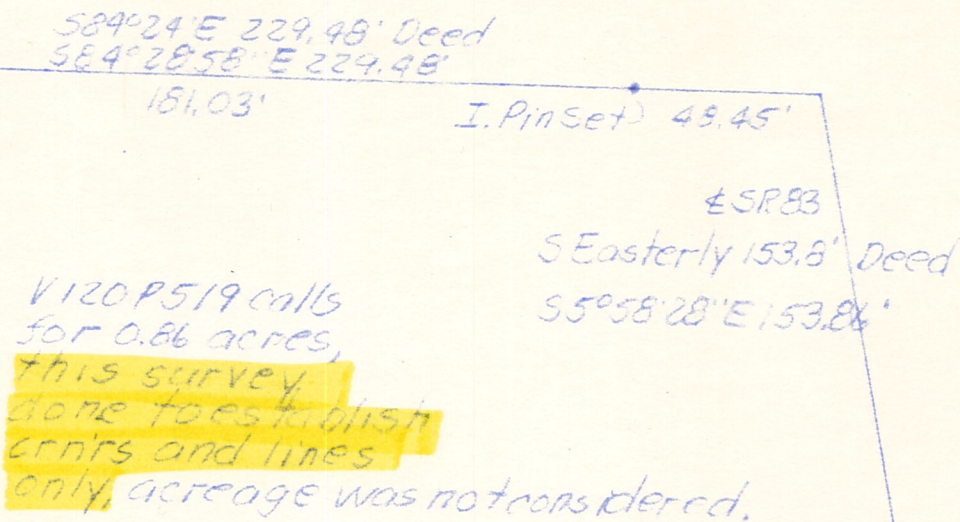 S84°24'E 229.48' Deed
S84°28'58"E 229.48'
181.03'
I.Pin Set) 48.45'
℄ SR83
S Easterly 153.8' Deed
S5°58'28"E 153.86'
V120P519 calls
for 0.86 acres,
this survey
done to establish
crnrs and lines
only, acreage was not considered.